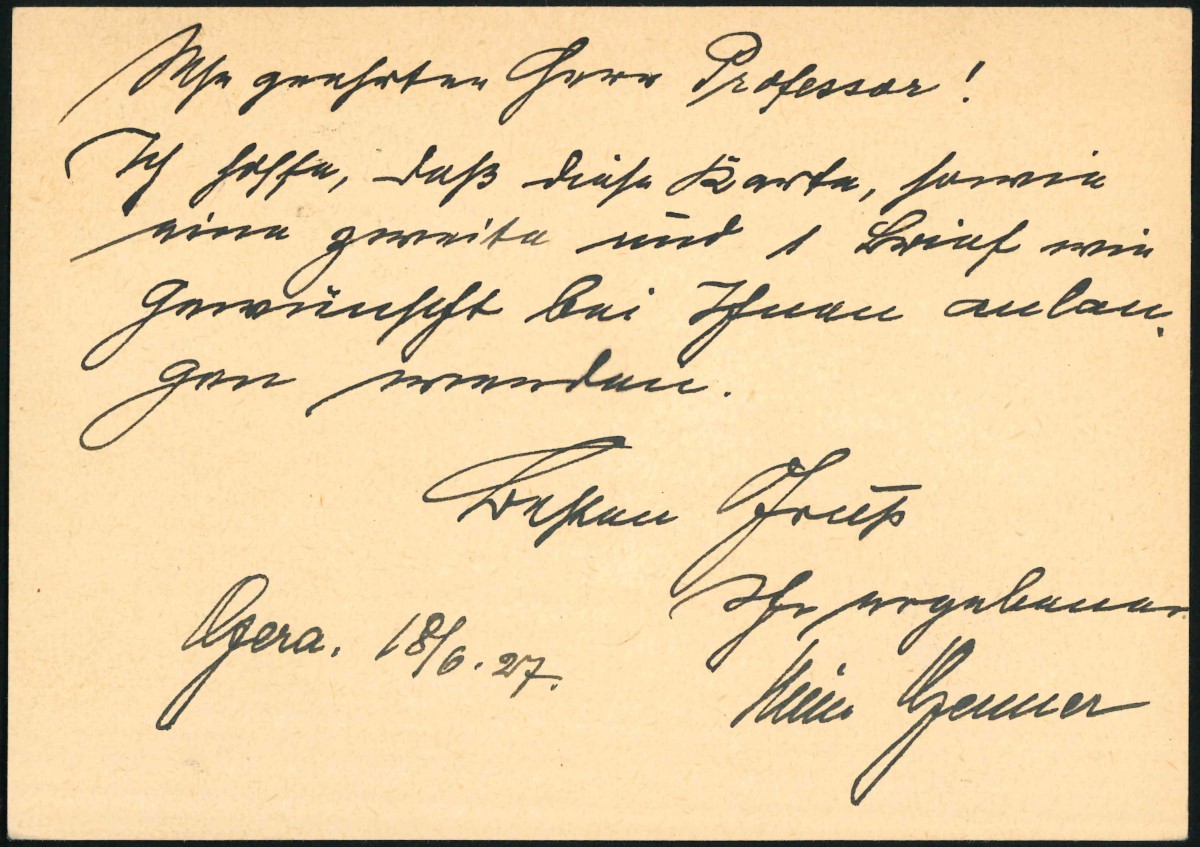 Sehr geehrter Herr Professor!
Ich hoffe, daß diese Karte, sowie
eine zweite und 1 Brief wie
gewünscht bei Ihnen anlan-
gen werden.
Besten Gruß
Ihr ergebener
Gera. 18/6. 27.